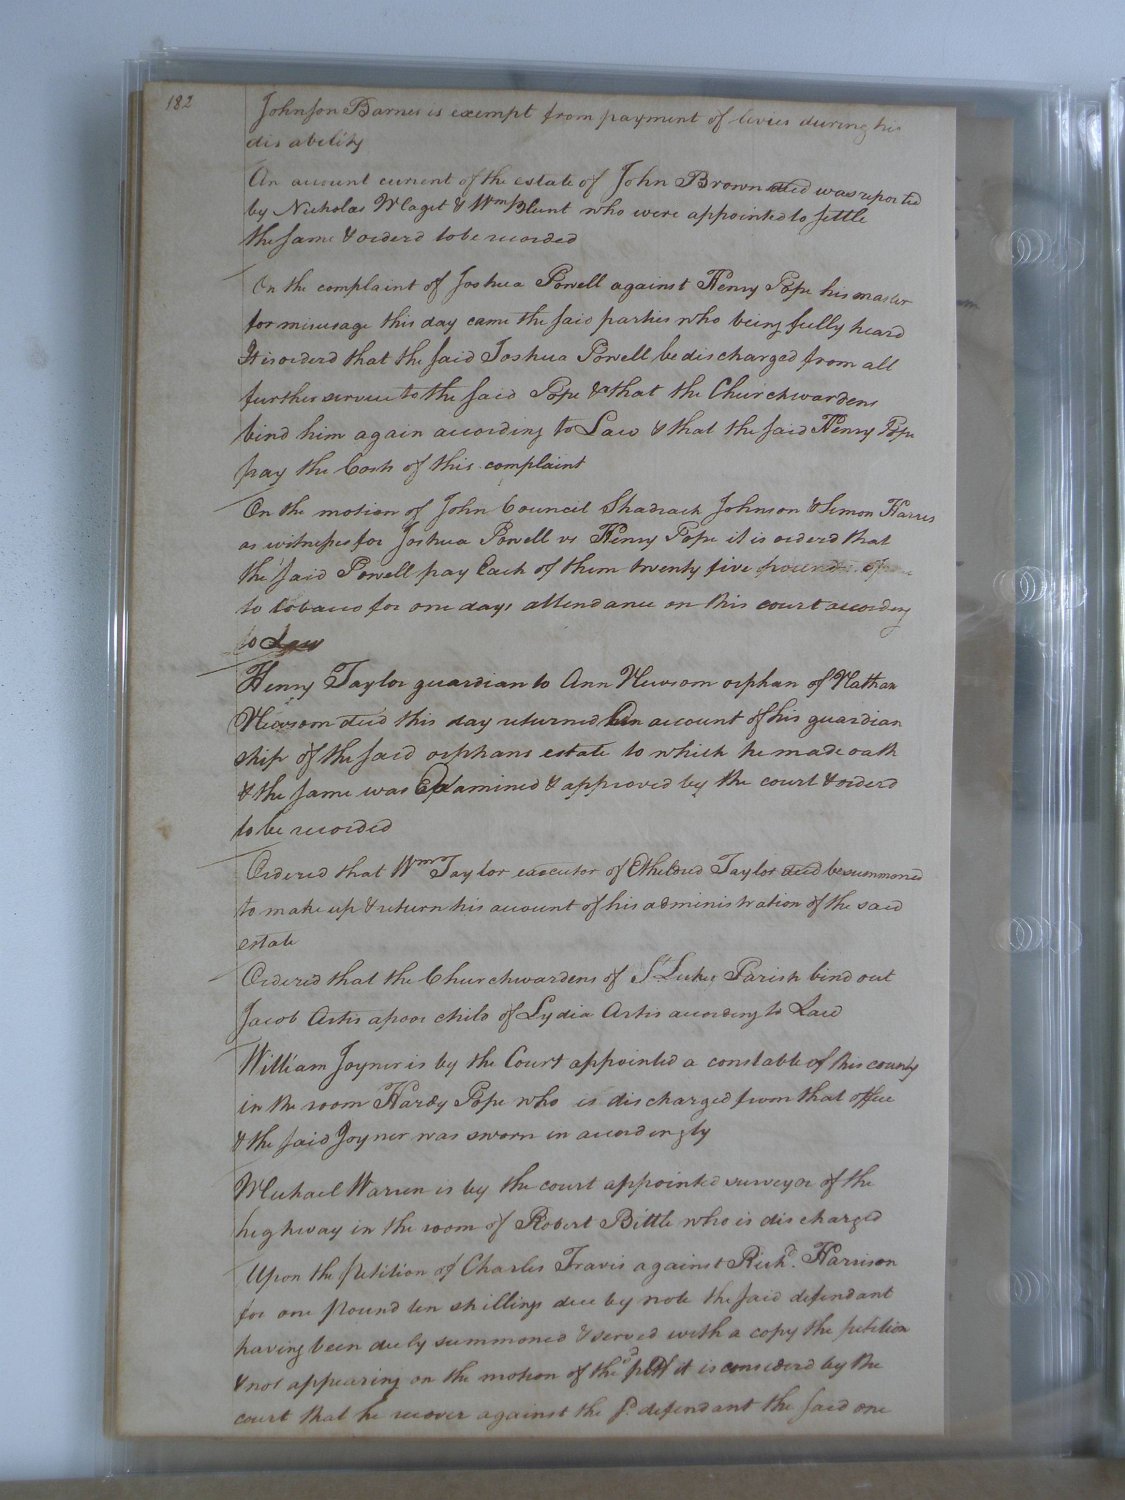 182
Johnson Barnes is exempt from payment of levies during his
disability
An account current of the estate of John Brown decd was reported
by Nicholas Maget & Wm Blunt who were appointed to settle
the same & orderd to be recorded
On the complaint of Joshua Powell against Henry Pope his master
for misusage this day came the said parties who being fully heard
It is orderd that the said Joshua Powell be discharged from all
further service to the said Pope & that the Churchwardens
bind him again according to Law & that the said Henry Pope
pay the Costs of this complaint
On the motion of John Council Shadrach Johnson & Simon Harris
as witnesses for Joshua Powell vs Henry Pope it is orderd that
the said Powell pay Each of them twenty five pounds of
to tobacco for one days attendance on this court according
to Law
Henry Taylor guardian to Ann Newsom orphan of Nathan
Newsom decd this day returned An account of his guardian
ship of the said orphans estate to which he made oath
& the same was Examined & approved by the court & orderd
to be recorded
Ordered that Wm Taylor executor of Etheldred Taylor decd be summoned
to make up & return his account of his administration of the said
estate
Ordered that the Churchwardens of St Lukes Parish bind out
Jacob Artis a poor child of Lydia Artis according to Law
William Joyner is by the Court appointed a constable of this county
in the room Hardy Pope who is discharged from that office
& the said Joyner was sworn in accordingly
Michael Warren is by the court appointed surveyor of the
highway in the room of Robert Bittle who is discharged
Upon the petition of Charles Travis against Richd. Harrison
for one pound ten shillings due by note the said defendant
having been duely summoned & served with a copy the petition
& not appearing on the motion of the pltf it is considerd by the
court that he recover against the sd. defendant the said one